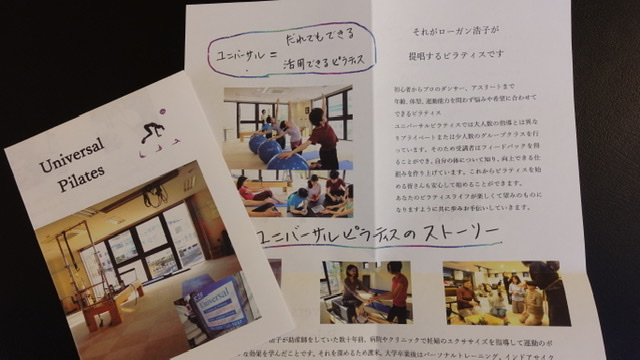 Universal
Pilates
universal
ユニバーサル = だれでもできる
活用できるピラティス
それがローガン浩子が
提唱するピラティスです
初心者からプロのダンサー、アスリートまで
年齢、体型、運動能力を問わず悩みや希望に合わせて
できるピラティス
ユニバーサルピラティスでは大人数の指導とは異な
りプライベートまたは少人数のグループクラスを行
っています。そのため受講者はフィードバックを得
ることができ、自分の体について知り、向上できる仕
組みを作り上げています。これからピラティスを始
める皆さんも安心して始めることができます。
あなたのピラティスライフが楽しくて望みのものに
なりますように共に歩みお手伝いしていきます。
ユニバーサルピラティスのストーリー
浩子が助産師をしていた数十年前、病院やクリニックで妊婦のエクササイズを指導して運動のポ
な効果を学んだことです。それを深めるため渡米、大学卒業後はパーソナルトレーニング、インドアサイク